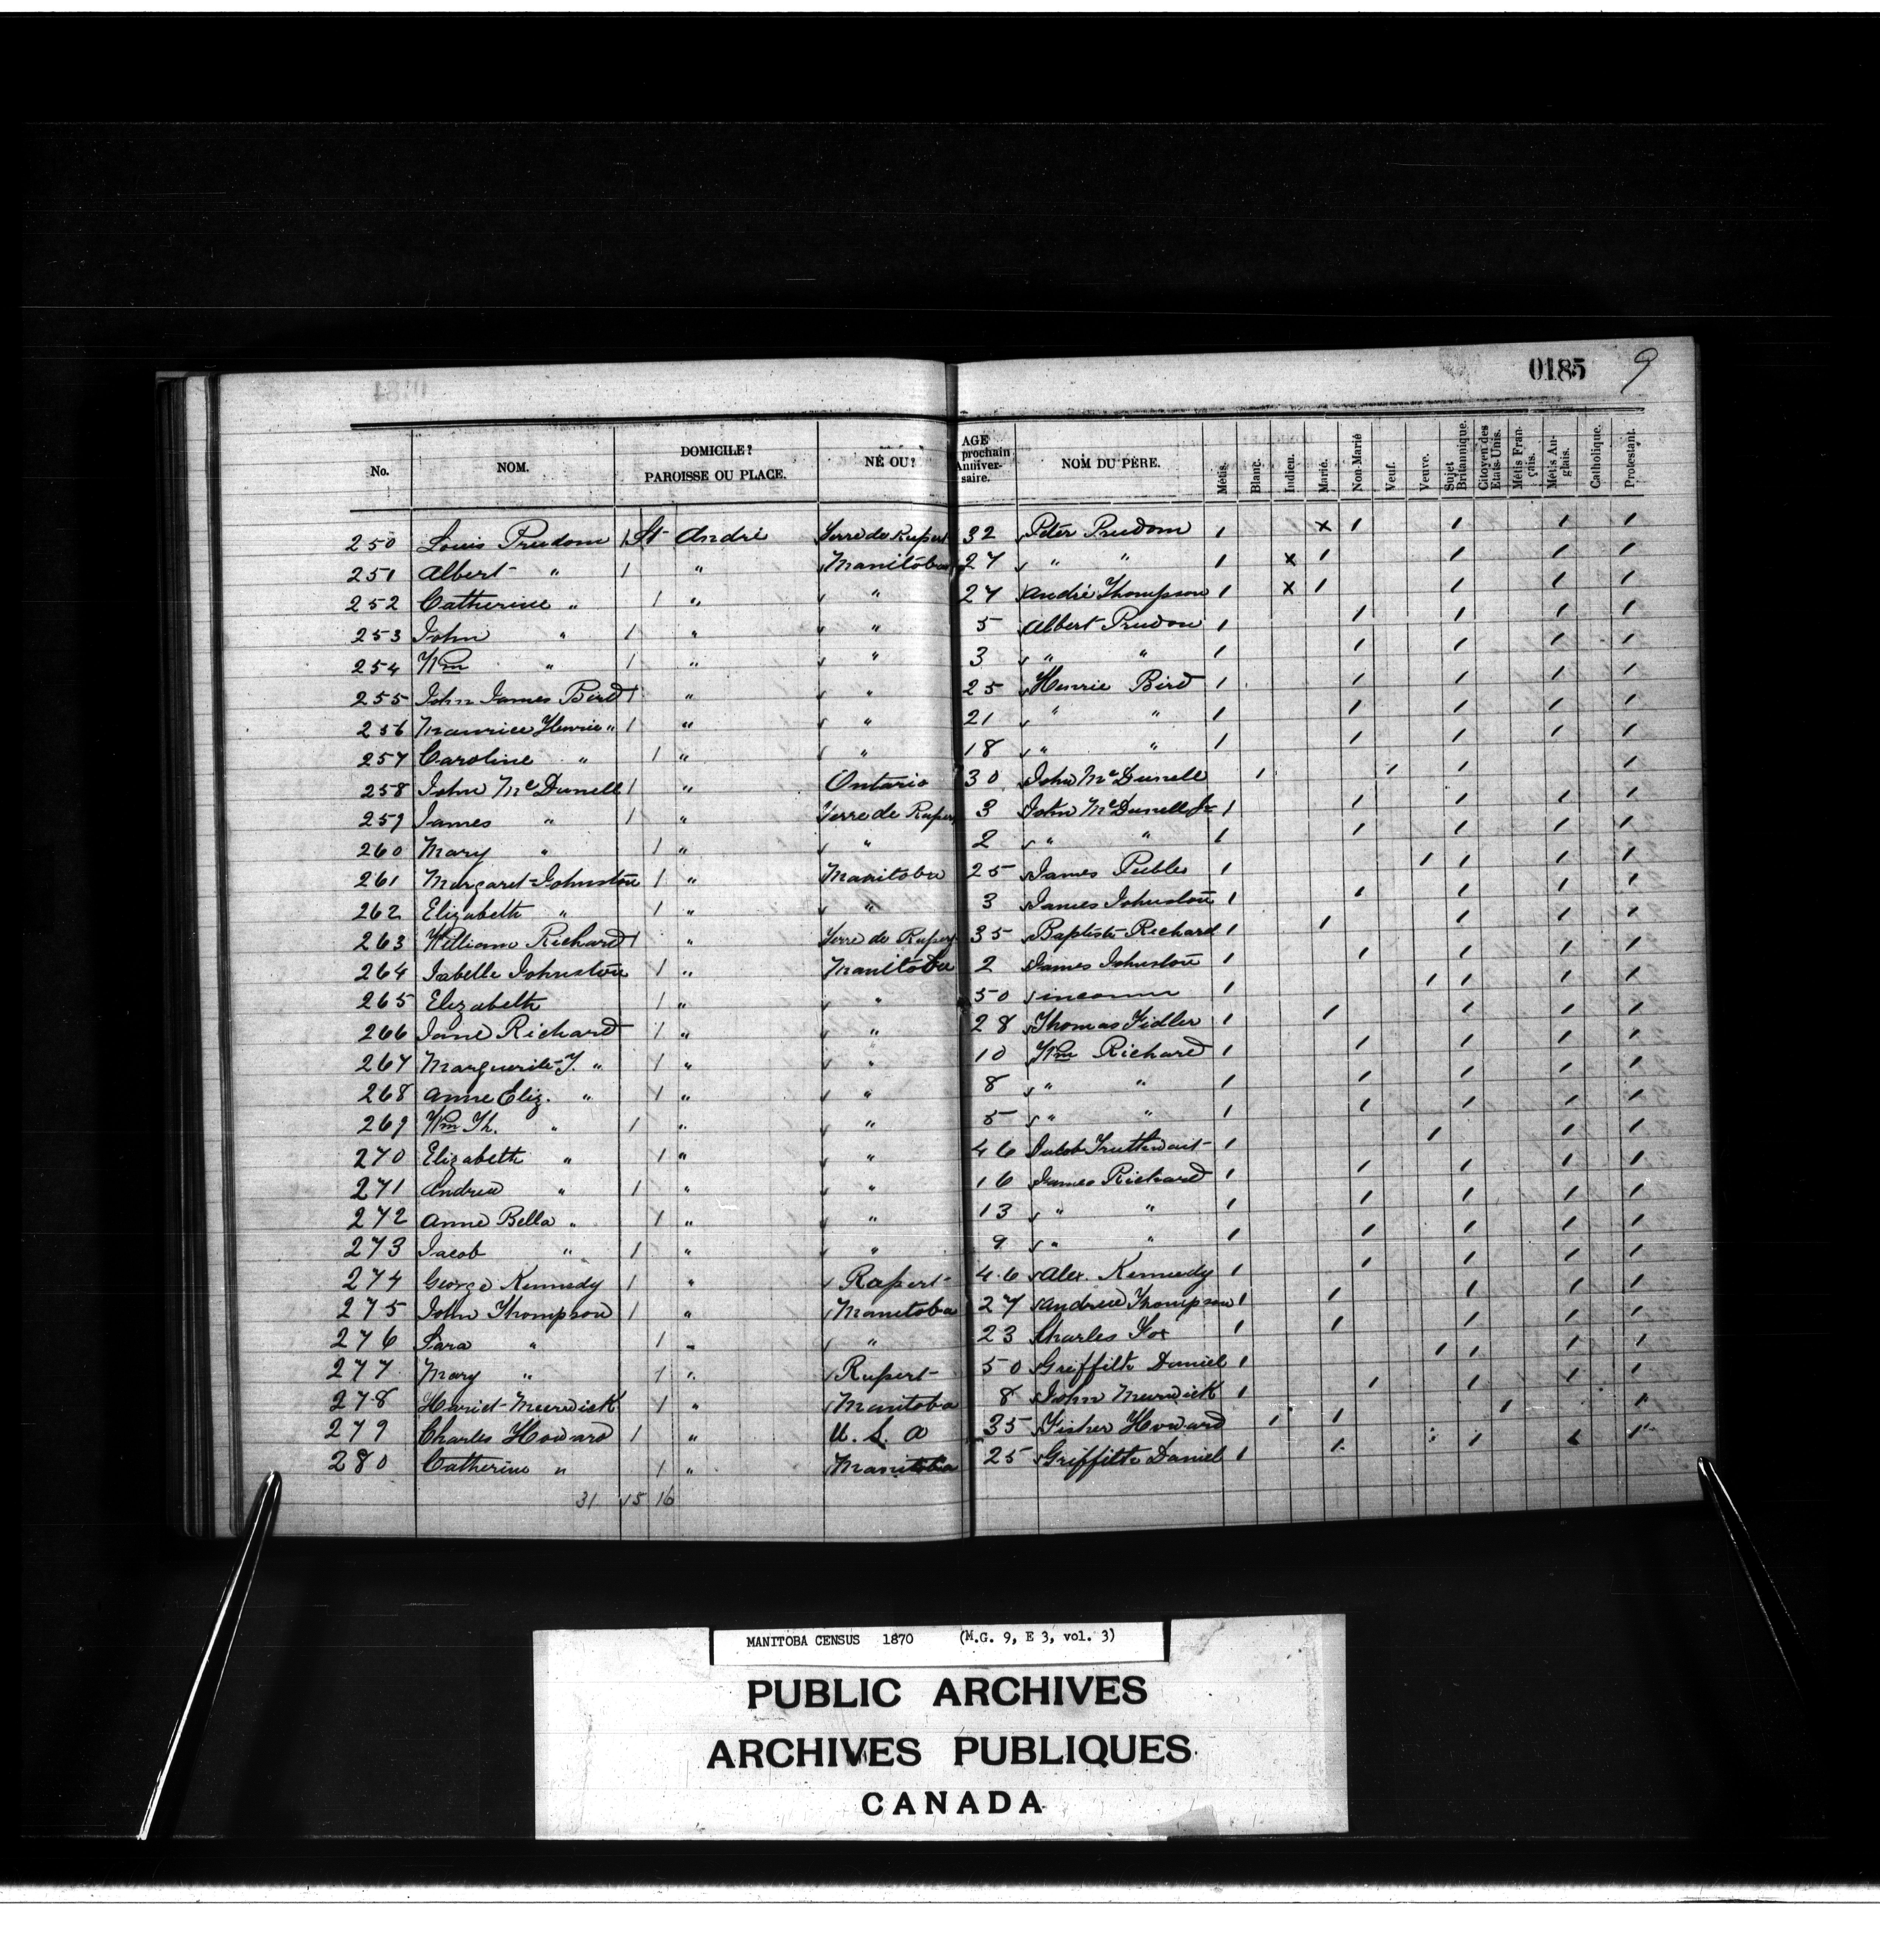 0185 9
No. NOM. DOMICILE? PAROISSE OU PLACE. NÉ OU? AGE prochain Anniver-saire. NOM DU PÈRE. Métis. Blanc. Indien. Marié. Non-Marié Veuf. Veuve. Sujet Britannique. Citoyen des Etats-Unis. Métis Fran-çais. Métis An-glais. Catholique. Protestant.
250 Louis Prudom 1 St André Terre de Rupert 32 Peter Prudom 1 x 1 1 1 1
251 Albert " 1 " Manitoba 27 " " 1 x 1 1 1 1
252 Catherine " 1 " " 27 André Thompson 1 x 1 1 1 1
253 John " 1 " " 5 Albert Prudom 1 1 1 1 1
254 Wm " 1 " " 3 " " 1 1 1 1 1
255 John James Bird 1 " " 25 Henrie Bird 1 1 1 1 1
256 Maurice Henrie " 1 " " 21 " " 1 1 1 1 1
257 Caroline " 1 " " 18 " " 1 1 1 1 1
258 John McDunell 1 " Ontario 30 John McDunell 1 1 1 1
259 James " 1 " Terre de Rupert 3 John McDunell Jr 1 1 1 1 1
260 Mary " 1 " " 2 " " 1 1 1 1 1
261 Margaret Johnston 1 " Manitoba 25 James Peebles 1 1 1 1 1
262 Elizabeth " 1 " " 3 James Johnston 1 1 1 1 1
263 William Richard 1 " Terre de Rupert 35 Baptiste Richard 1 1 1 1 1
264 Isabelle Johnston 1 " Manitoba 2 James Johnston 1 1 1 1 1
265 Elizabeth 1 " " 50 inconnu 1 1 1 1 1
266 Jane Richard 1 " " 28 Thomas Fidler 1 1 1 1 1
267 Marguerite J. " 1 " " 10 Wm Richard 1 1 1 1 1
268 Anne Eliz. " 1 " " 8 " " 1 1 1 1 1
269 Wm Th. " 1 " " 5 " " 1 1 1 1 1
270 Elizabeth " 1 " " 46 Jacob Truthwait 1 1 1 1
271 Andrew " 1 " " 16 James Richard 1 1 1 1 1
272 Anne Bella " 1 " " 13 " " 1 1 1 1 1
273 Jacob " 1 " " 9 " " 1 1 1 1 1
274 George Kennedy 1 " Rupert 46 Alex. Kennedy 1 1 1 1 1
275 John Thompson 1 " Manitoba 27 Andrew Thompson 1 1 1 1 1
276 Sara " 1 " " 23 Charles Fox 1 1 1 1 1
277 Mary " 1 " Rupert 50 Griffith Daniel 1 1 1 1 1
278 Hariet Murdick 1 " Manitoba 8 John Murdick 1 1 1 1 1
279 Charles Howard 1 " U. S. A 35 Fisher Howard 1 1 1 1
280 Catherine " 1 " Manitoba 25 Griffith Daniel 1 1 1 1 1
31 15 16
MANITOBA CENSUS 1870 (M.G. 9, E 3, vol. 3)
PUBLIC ARCHIVES
ARCHIVES PUBLIQUES
CANADA